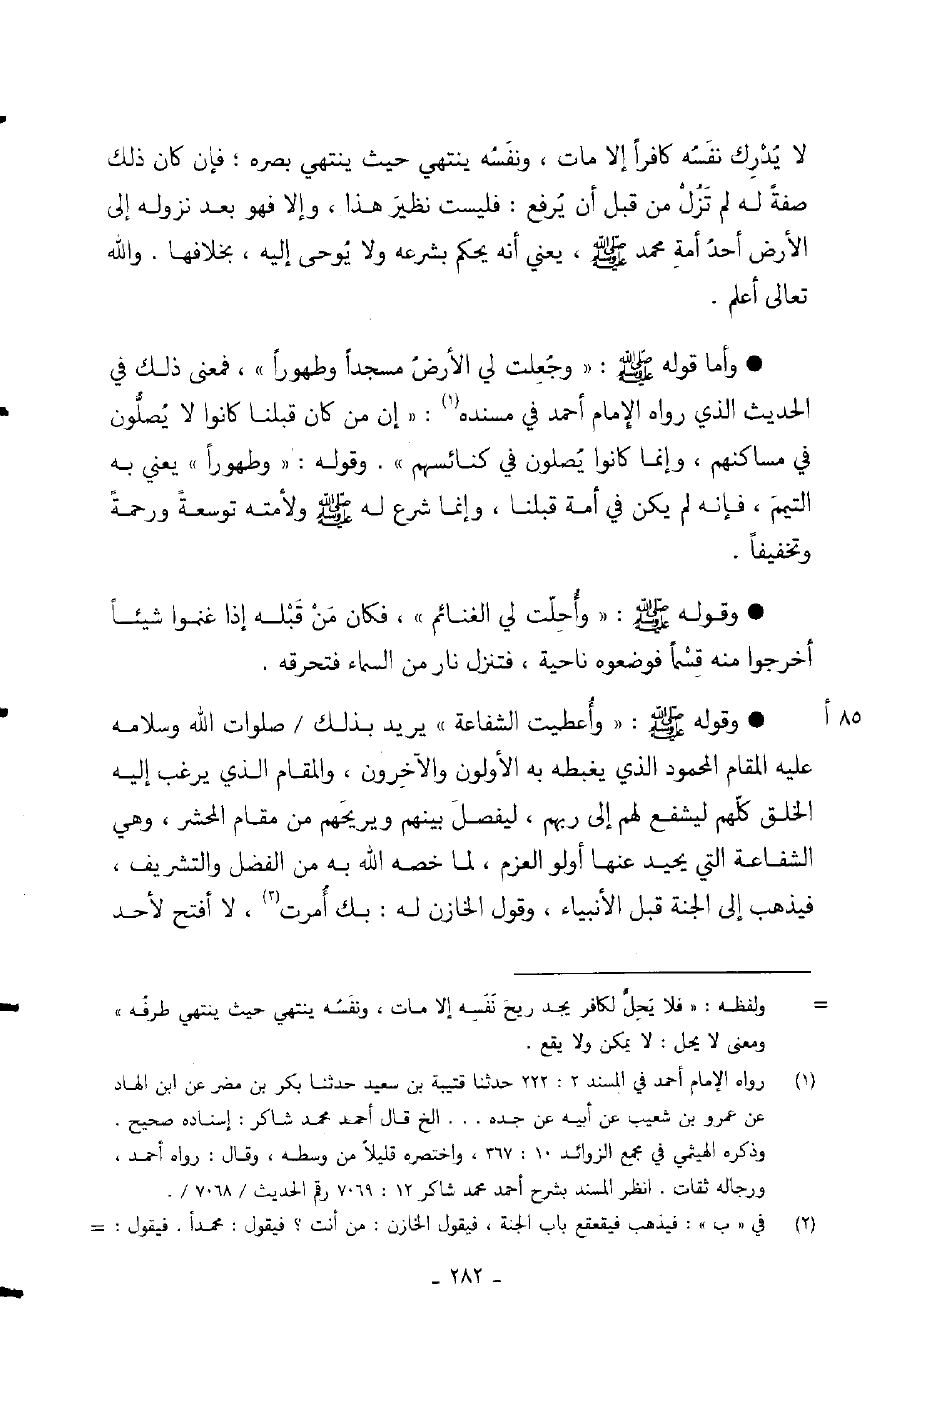 لا يُدْرِك نفَسُه كافراً إلا مات ، ونفَسُه ينتهي حيث ينتهي بصره ؛ فإن كان ذلك
صفةً له لم تَزُلْ من قبل أن يُرفع : فليست نظيرَ هذا ، وإلا فهو بعد نزوله إلى
الأرض أحدُ أمةِ محمد ﷺ ، يعني أنه يحكم بشرعه ولا يُوحى إليه ، بخلافها . والله
تعالى أعلم .
● وأما قوله ﷺ : « وجُعلت لي الأرضُ مسجداً وطهوراً » ، فمعنى ذلك في
الحديث الذي رواه الإمام أحمد في مسنده(١) : « إن من كان قبلنا كانوا لا يُصلُّون
في مساكنهم ، وإنما كانوا يُصلون في كنائسهم » . وقوله : « وطهوراً » يعني به
التيممَ ، فإنه لم يكن في أمة قبلنا ، وإنما شرع له ﷺ ولأمته توسعةً ورحمةً
وتخفيفاً .
● وقوله ﷺ : « وأُحلّت لي الغنائم » ، فكان مَنْ قَبْله إذا غنموا شيئاً
أخرجوا منه قسْماً فوضعوه ناحية ، فتنزل نار من السماء فتحرقه .
● وقوله ﷺ : « وأُعطيت الشفاعة » يريد بذلك / صلوات الله وسلامه ٨٥ أ
عليه المقام المحمود الذي يغبطه به الأولون والآخرون ، والمقام الذي يرغب إليه
الخلق كلّهم ليشفع لهم إلى ربهم ، ليفصلَ بينهم ويريحَهم من مقام المحشر ، وهي
الشفاعة التي يحيد عنها أولو العزم ، لما خصه الله به من الفضل والتشريف ،
فيذهب إلى الجنة قبل الأنبياء ، وقول الخازن له : بك أُمرت(٢) ، لا أفتح لأحد
= ولفظه : « فلا يَحِلُّ لكافر يجد ريحَ نَفَسِه إلا مات ، ونفَسُه ينتهي حيث ينتهي طرفُه »
ومعنى لا يحل : لا يمكن ولا يقع .
(١) رواه الإمام أحمد في المسند ٢ : ٢٢٢ حدثنا قتيبة بن سعيد حدثنا بكر بن مضر عن ابن الهاد
عن عمرو بن شعيب عن أبيه عن جده . . . الخ قال أحمد محمد شاكر : إسناده صحيح .
وذكره الهيثمي في مجمع الزوائد ١٠ : ٣٦٧ ، واختصره قليلاً من وسطه ، وقال : رواه أحمد ،
ورجاله ثقات . انظر المسند بشرح أحمد محمد شاكر ١٢ : ٧٠٦٩ رقم الحديث / ٧٠٦٨ / .
(٢) في « ب » : فيذهب فيقعقع باب الجنة ، فيقول الخازن : من أنت ؟ فيقول : محمداً . فيقول : =
- ٢٨٢ -